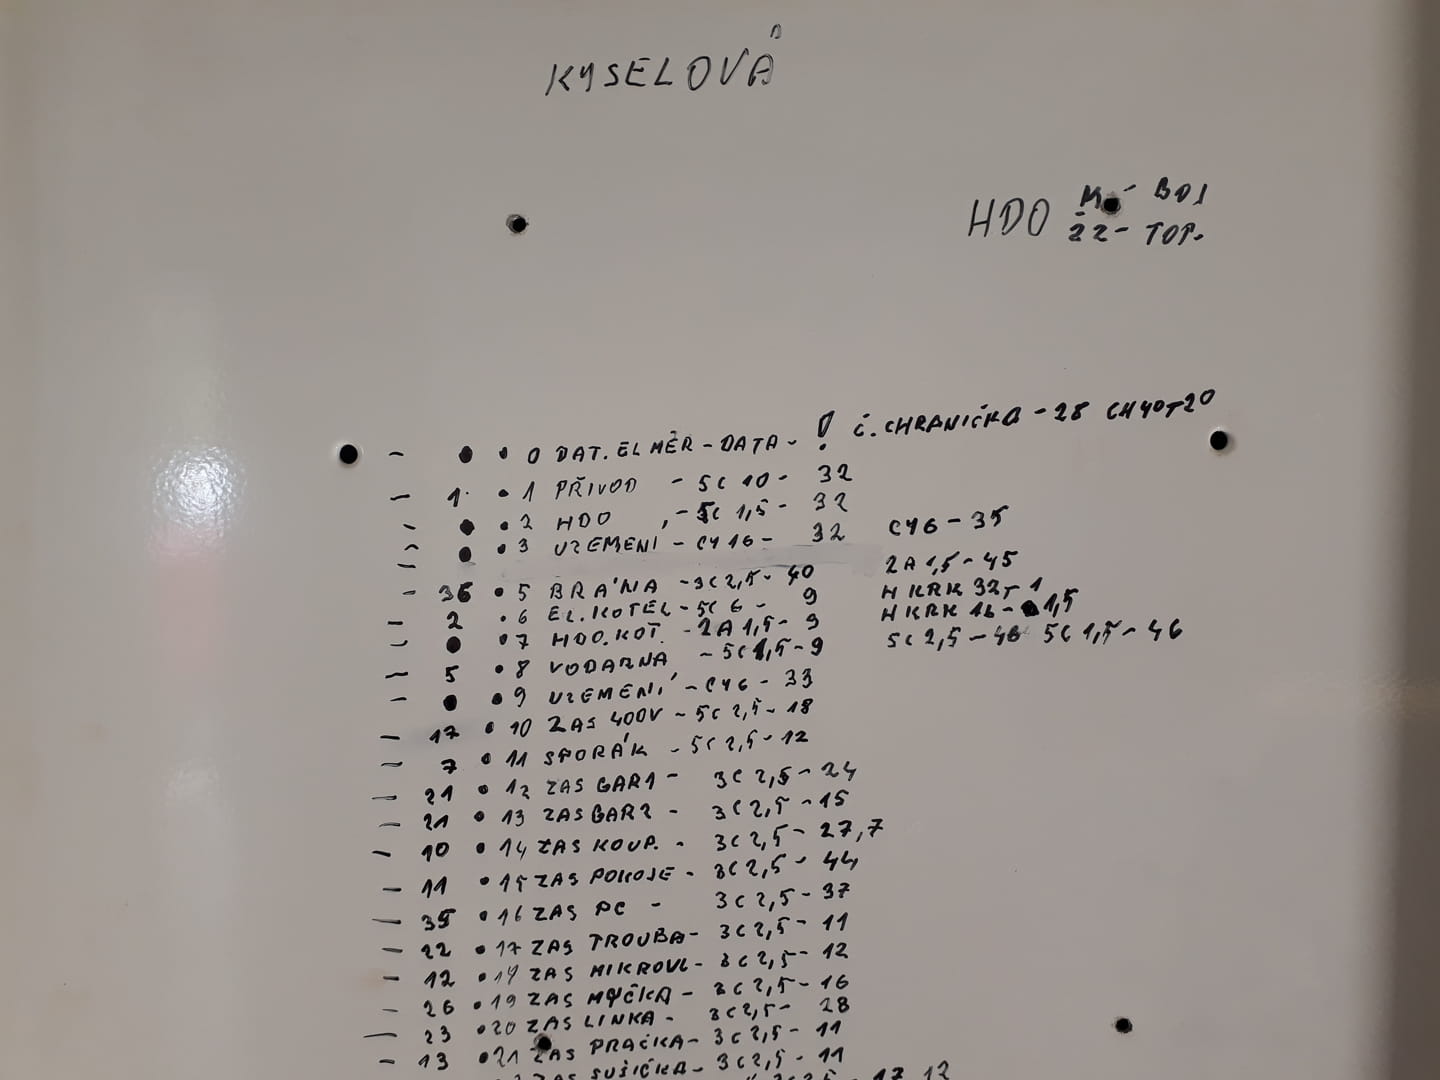 KYSELOVÁ
HDO K - BOJ
22 - TOP.
- ● • 0 DAT. EL MĚR - DATA - ! Č. CHRANIČKA - 28 CH40T20
- 1. • 1 PŘIVOD - 5C 10 - 32
- ● • 2 HDO , - 5C 1,5 - 32
- ● • 3 UZEMENÍ - CY 16 - 32 CY6 - 35
- 36 • 5 BRÁNA - 3C 2,5 - 40 2A 1,5 - 45
- 2 • 6 EL. KOTEL - 5C 6 - 9 HKRK 32 - 1
- ● • 7 HDO. KOT. - 2A 1,5 - 9 HKRK 16 - 1,5
- 5 • 8 VODARNA - 5C 1,5 - 9 5C 2,5 - 46 5C 1,5 - 46
- ● • 9 UZEMENÍ - CY6 - 33
- 17 • 10 ZAS 400V - 5C 2,5 - 18
- 7 • 11 SPORÁK - 5C 2,5 - 12
- 21 • 12 ZAS GAR1 - 3C 2,5 - 24
- 21 • 13 ZAS GAR2 - 3C 2,5 - 15
- 10 • 14 ZAS KOUP. - 3C 2,5 - 27,7
- 11 • 15 ZAS POKOJE - 3C 2,5 - 44
- 35 • 16 ZAS PC - 3C 2,5 - 37
- 22 • 17 ZAS TROUBA - 3C 2,5 - 11
- 12 • 19 ZAS MIKROVL - 3C 2,5 - 12
- 26 • 19 ZAS MYČKA - 3C 2,5 - 16
- 23 • 20 ZAS LINKA - 3C 2,5 - 28
- 13 • 21 ZAS PRAČKA - 3C 2,5 - 11
ZAS SUŠIČKA - 3C 2,5 - 11
17 12